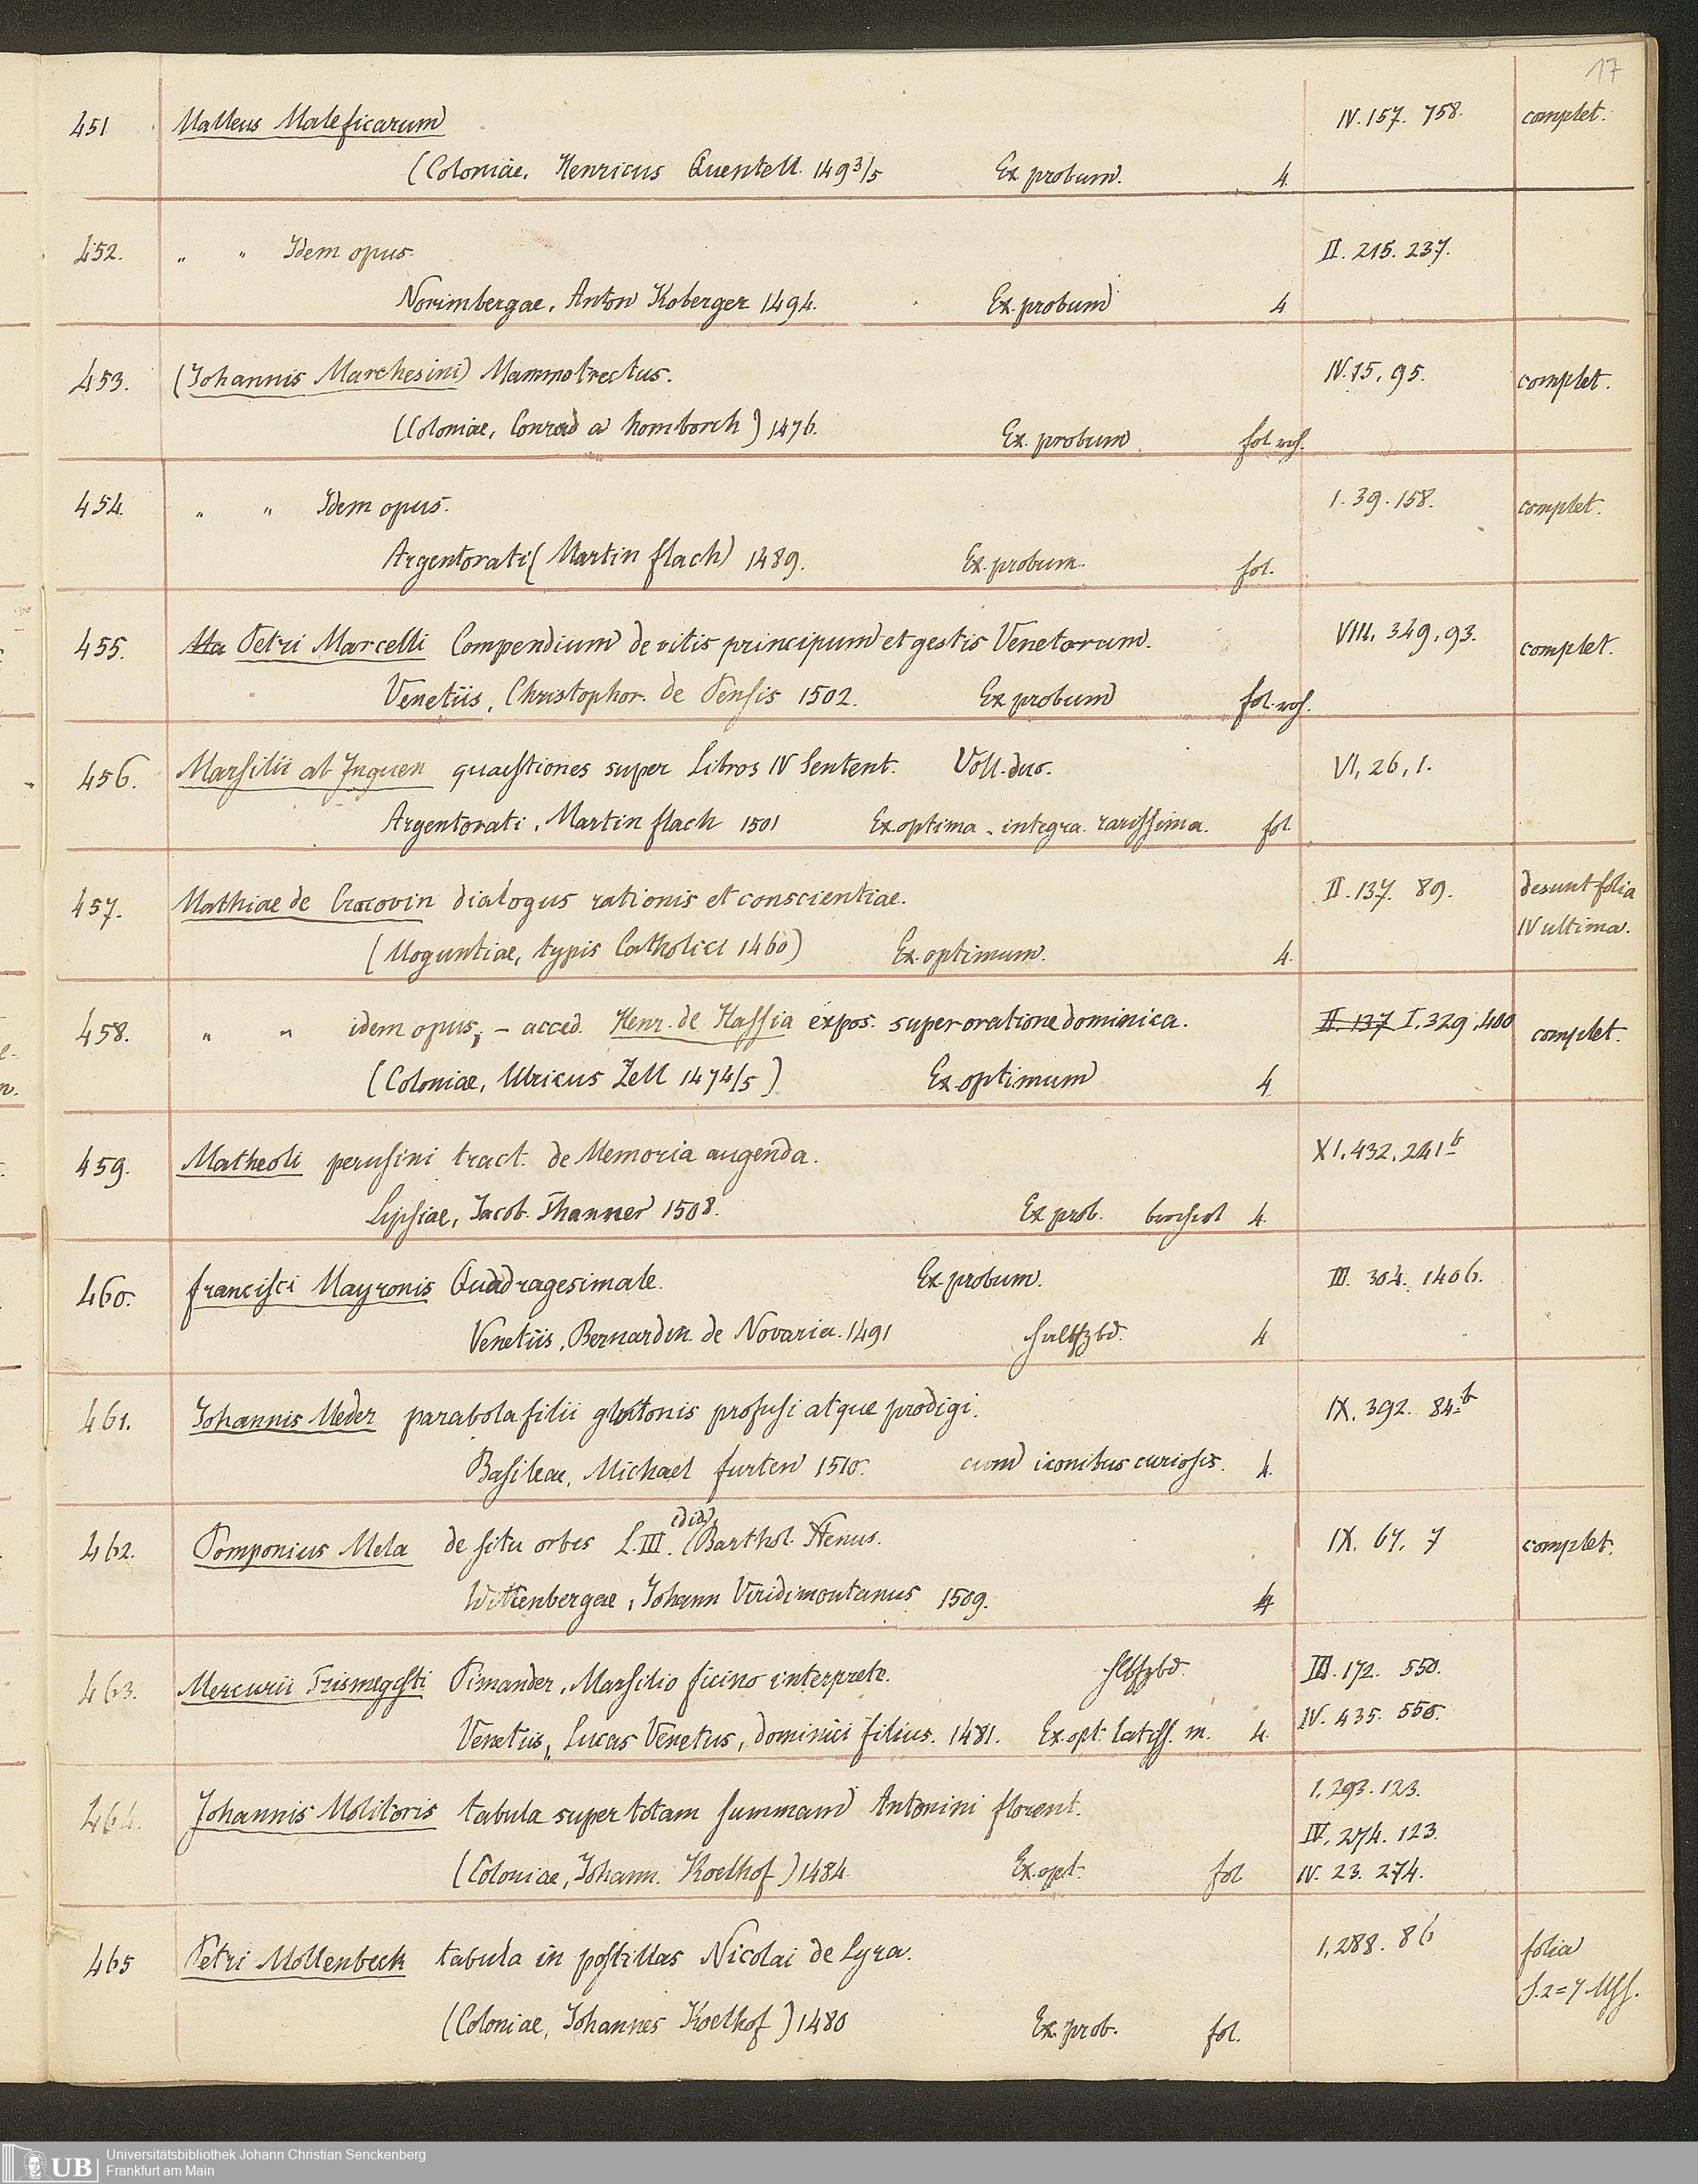 17
451 Malleus Maleficarum IV. 157. 758. complet.
(Coloniae. Henricus Quentell. 1493/5 Ex probum. 4.
452. " " Idem opus. II. 215. 237.
Norimbergae, Anton Koberger 1494. Ex. probum 4
453. (Johannis Marchesini) Mammotrectus. IV. 75, 95. complet.
(Coloniae, Conrad a homborch) 1476. Ex. probum fol.
454. " " Idem opus. I. 39. 158. complet.
Argentorati (Martin flach) 1489. Ex. probum. fol.
455. Petri Marcelli Compendium de vitis principum et gestis Venetorum. VIII, 349, 93. complet.
Venetiis, Christophor. de Pensis 1502. Ex probum fol.
456. Marsilii ab Inguen quaestiones super Libros IV Sentent. Voll. duo. VI, 26, 1.
Argentorati, Martin flach 1501 Ex. optima, integra. rarissima. fol
457. Mathiae de Cracovin dialogus rationis et conscientiae. II. 137. 89. desunt folia
IV ultima.
(Moguntiae, typis Catholici 1460) Ex. optimum. 4.
458. " " idem opus, – acced. Henr. de Hassia expos. super oratione dominica. II. 137 I, 329, 400 complet.
(Coloniae, Ulricus Zell 1474/5) Ex optimum 4
459. Matheoli perusini tract. de Memoria augenda. XI, 432, 241b
Lipsiae, Jacob. Thanner 1508. Ex prob. 4.
460. francisci Mayronis Quadragesimale. Ex. probum. III. 304. 1406.
Venetiis, Bernardin. de Novaria. 1491 4
461. Johannis Meder parabola filii glutonis profusi atque prodigi. IX. 392. 84b
Basileae, Michael furten 1510. cum iconibus curiosis. 4.
462. Pomponius Mela de situ orbis L. III. (Barthol. Stenus. IX. 67. 7 complet.
Wittenbergae, Johann Viridimontanus 1509. 4
463. Mercurii Trismegisti Pimander, Marsilio ficino interprete. III. 172. 550.
Venetiis, Lucas Venetus, dominici filius. 1481. Ex. opt. latiss. m. 4. IV. 435. 550.
464. Johannis Molitoris tabula super totam summam Antonini florent. I, 293. 123.
IV, 274. 123.
(Coloniae, Johann. Koelhof) 1484 Ex. opt. fol IV. 23. 274.
465 Petri Mollenbeck tabula in postillas Nicolai de Lyra. I, 288. 86 folia
(Coloniae, Johannes Koelhof) 1480 Ex. prob. fol.
UB Universitätsbibliothek Johann Christian Senckenberg
Frankfurt am Main